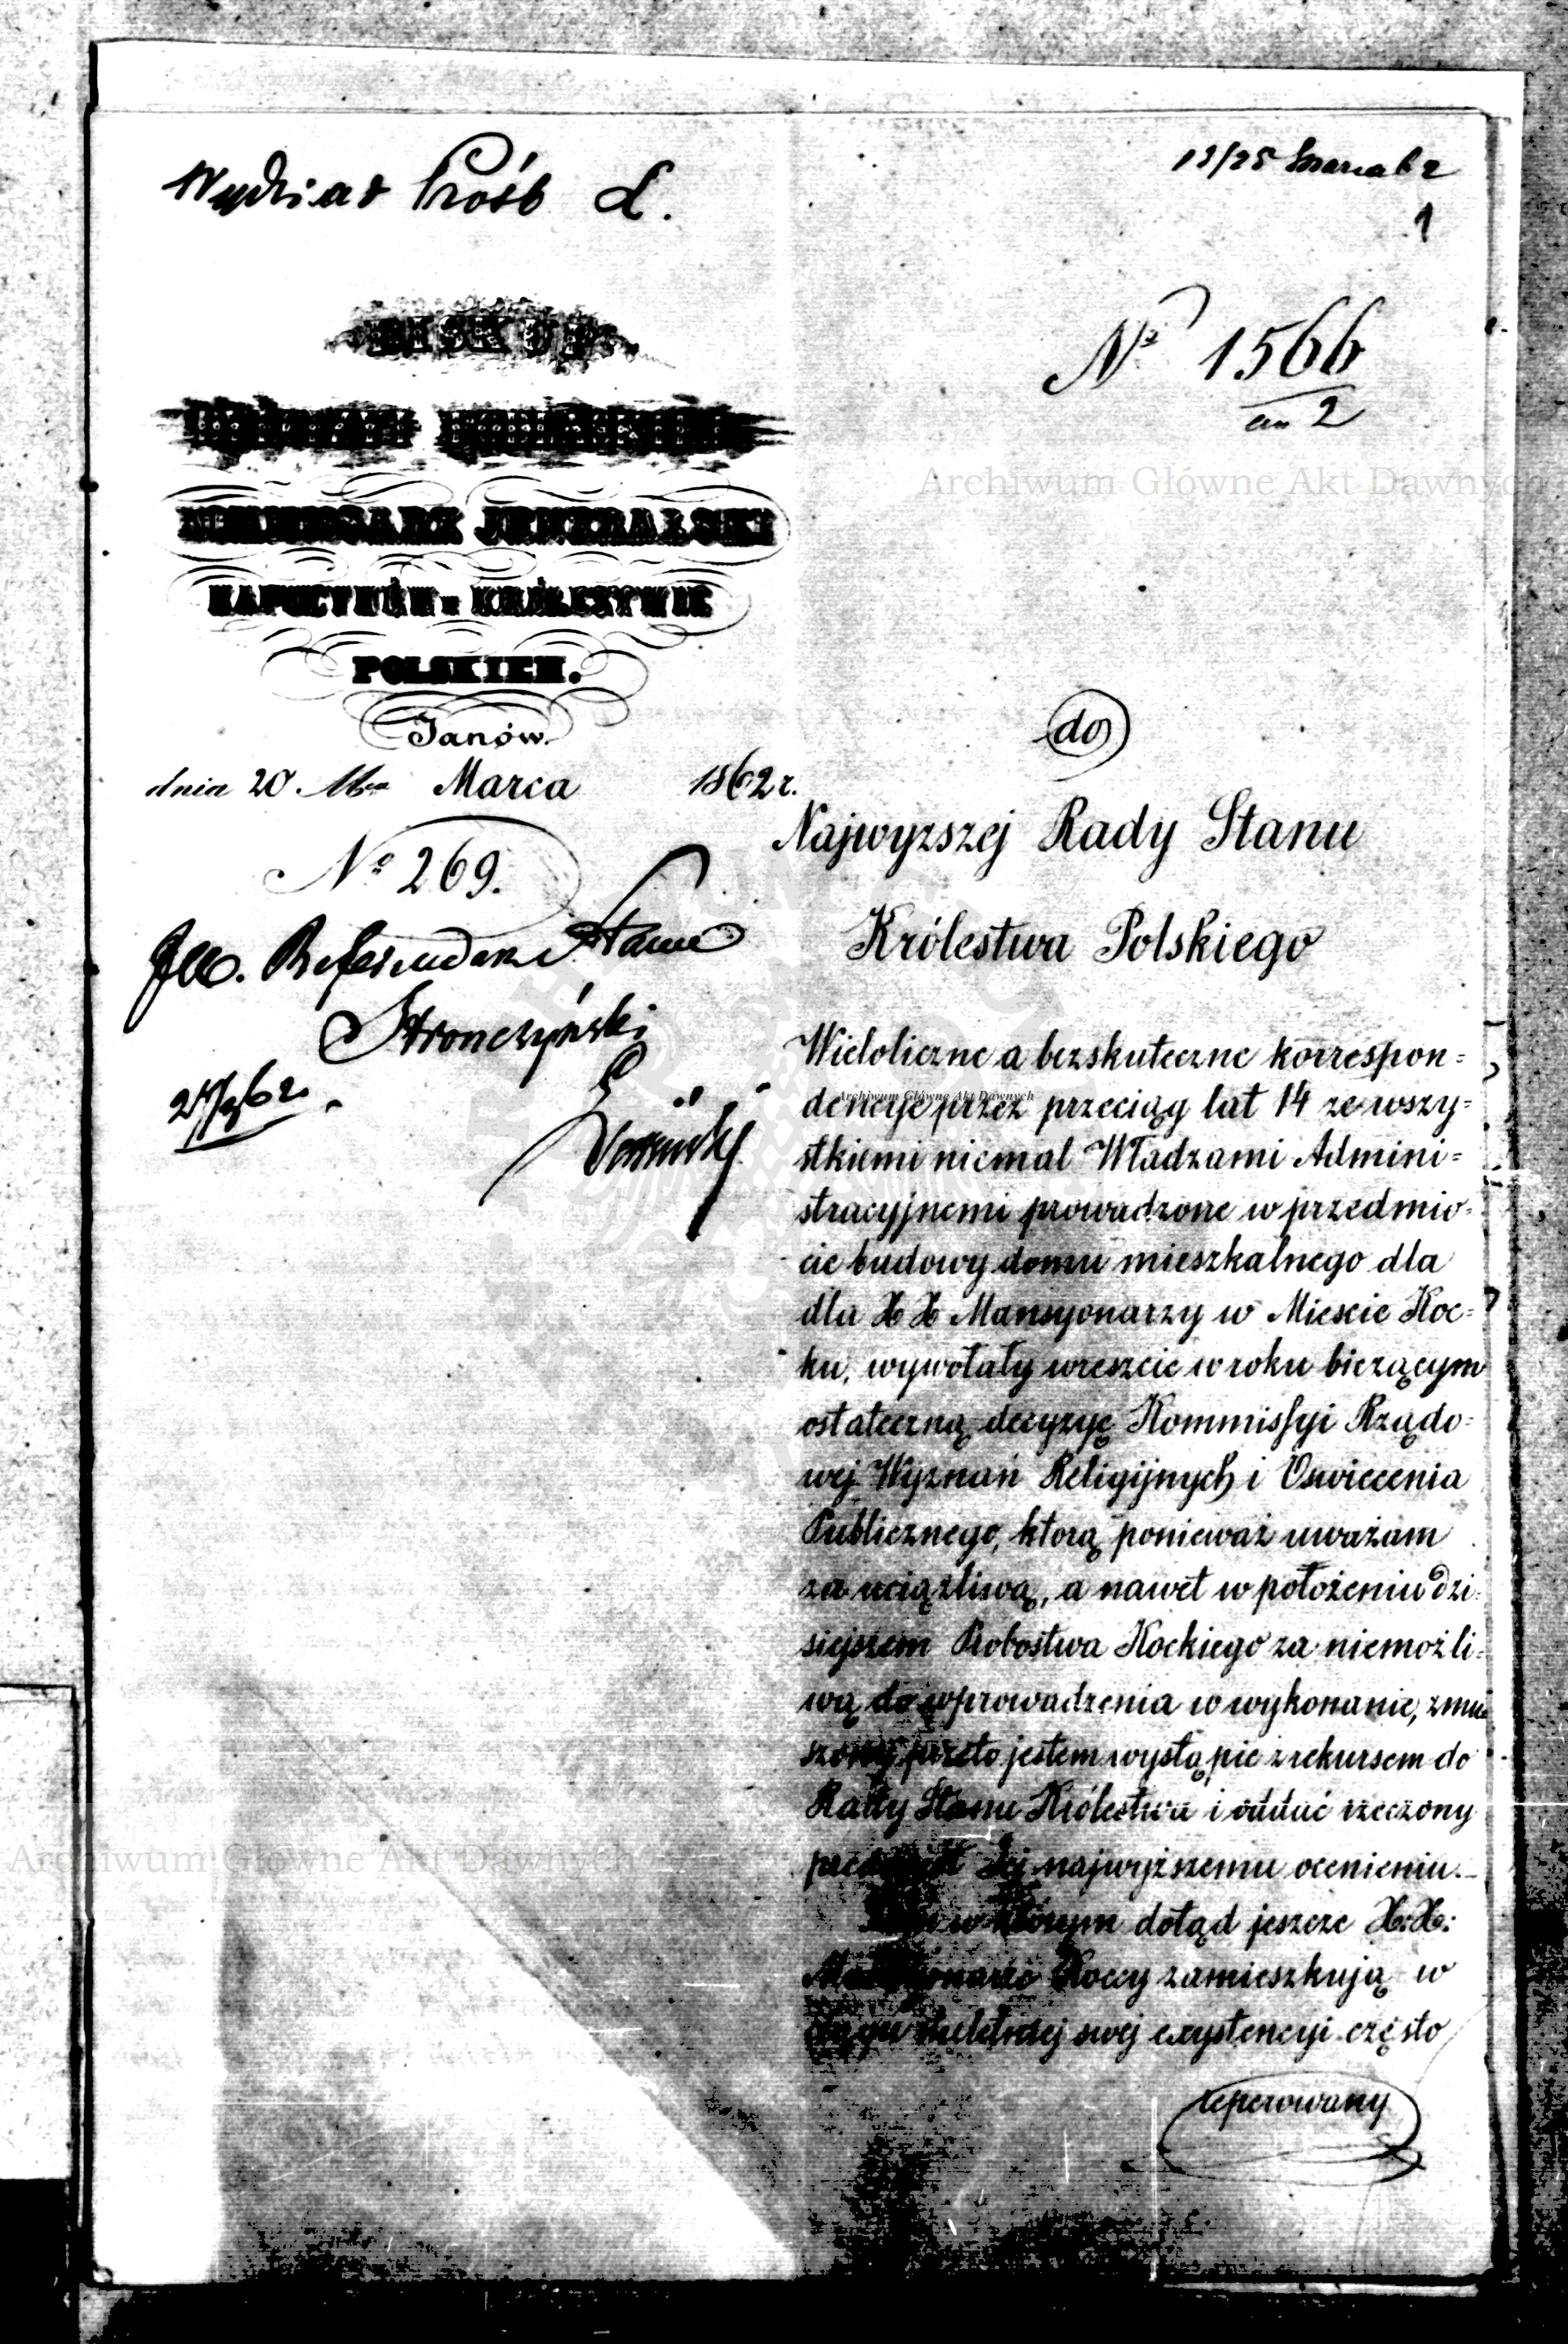 Wydział Próśb L.
13/25 Marca 62
1
BISKUP
№ 1566
an 2
KOMMISSARZ JENERALSKI
KAPUCYNÓW w KRÓLESTWIE
POLSKIEM.
Janów.
dnia 20 Mca Marca 1862 r.
№ 269.
JW. Referendarz Stanu
Stronczyński
do
Najwyzszej Rady Stanu
Królestwa Polskiego
Wieloliczne a bezskuteczne korrespon=
dencye przez przeciąg lat 14 ze wszy=
stkiemi niemal Władzami Admini=
stracyjnemi prowadzone w przedmio=
cie budowy domu mieszkalnego dla
dla X X Mansyonarzy w Miescie Koc=
ku, wywołały wreszcie w roku bieżącym
ostateczną decyzyę Kommissyi Rządo=
wej Wyznań Religijnych i Oswiecenia
Publicznego, ktorą ponieważ uważam
za uciążliwą, a nawet w położeniu dzi=
siejszem Probostwa Kockiego za niemożli=
wą do wprowadzenia w wykonanie, zmu
szony przeto jestem wystąpic z rekursem do
Rady Stanu Królestwa i oddać rzeczony
przedmiot Jej najwyższemu ocenieniu.
w którym dotąd jeszcze X: X:
Mansyonarze Koccy zamieszkują w
ciągu stuletniej swej exystencyi często
reperowany
Archiwum Główne Akt Dawnych
Archiwum Główne Akt Dawnych
Archiwum Główne Akt Dawnych